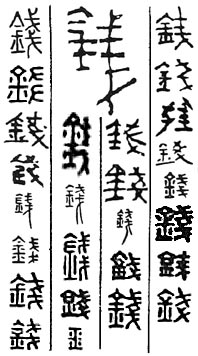 錢錢錢錢錢錢錢錢
錢
錢錢錢錢錢
錢錢錢錢
錢錢錢錢錢錢錢錢